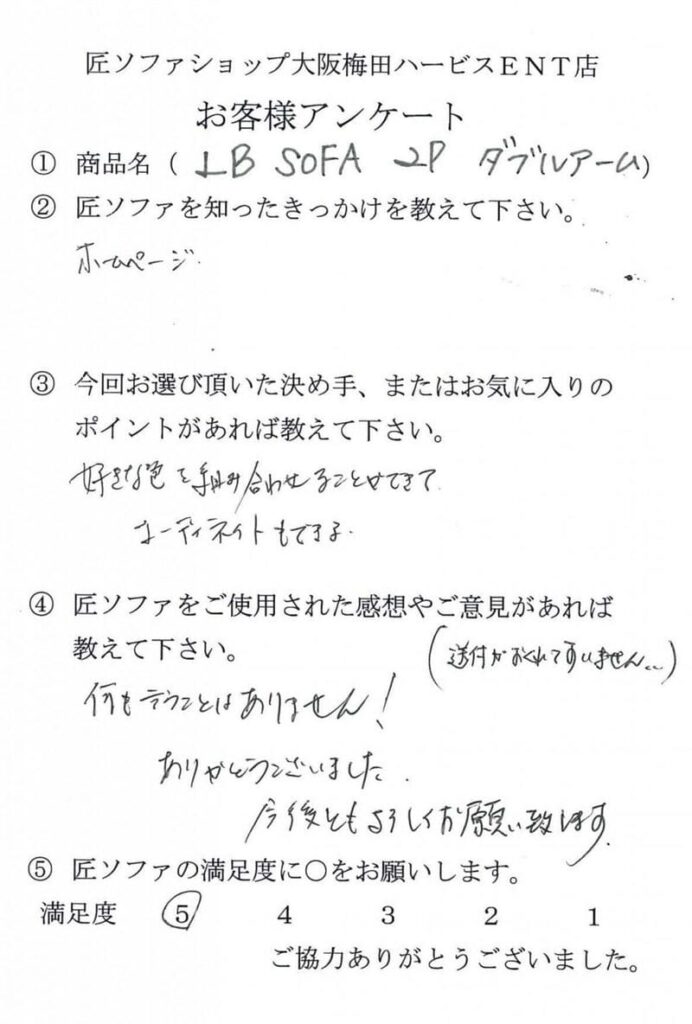 匠ソファショップ大阪梅田ハービスENT店
お客様アンケート
① 商品名 ( LB SOFA 2P ダブルアーム)
② 匠ソファを知ったきっかけを教えて下さい。
ホームページ.
③ 今回お選び頂いた決め手、またはお気に入りの
ポイントがあれば教えて下さい。
好きな色を組み合わせることができて
コーディネイトもできる.
④ 匠ソファをご使用された感想やご意見があれば
教えて下さい。
(送付がおくれてすいません...)
何も言うことはありません!
ありがとうございました.
今後ともよろしくお願い致します.
⑤ 匠ソファの満足度に○をお願いします。
満足度 5 4 3 2 1
ご協力ありがとうございました。